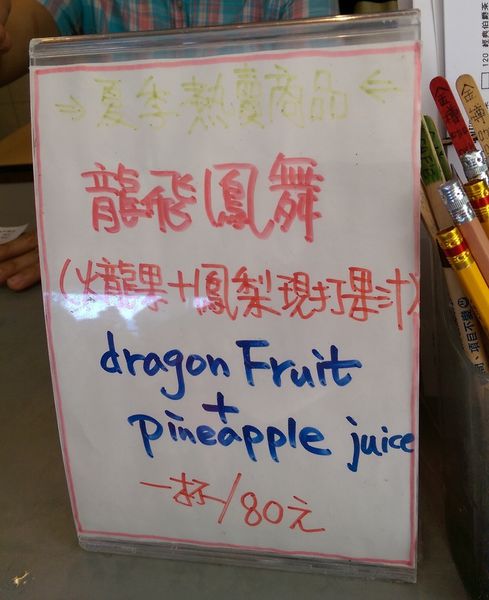 →夏季熱賣商品←
龍飛鳳舞
(火龍果+鳳梨現打果汁)
dragon Fruit
+
pineapple juice
一杯/80元